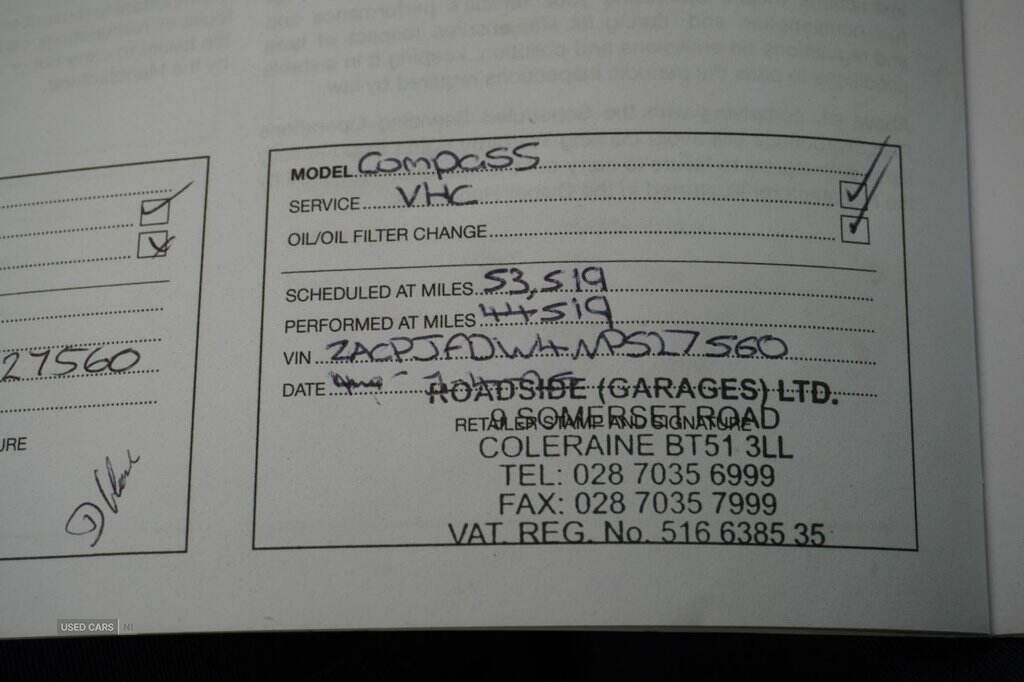 27560
URE
MODEL Compass
SERVICE VHC
OIL/OIL FILTER CHANGE
SCHEDULED AT MILES 53,519
PERFORMED AT MILES 44519
VIN ZACPJFDW4NPS27560
DATE
ROADSIDE (GARAGES) LTD.
9 SOMERSET ROAD
RETAILER STAMP AND SIGNATURE
COLERAINE BT51 3LL
TEL: 028 7035 6999
FAX: 028 7035 7999
VAT. REG. No. 516 6385 35
USED CARS NI